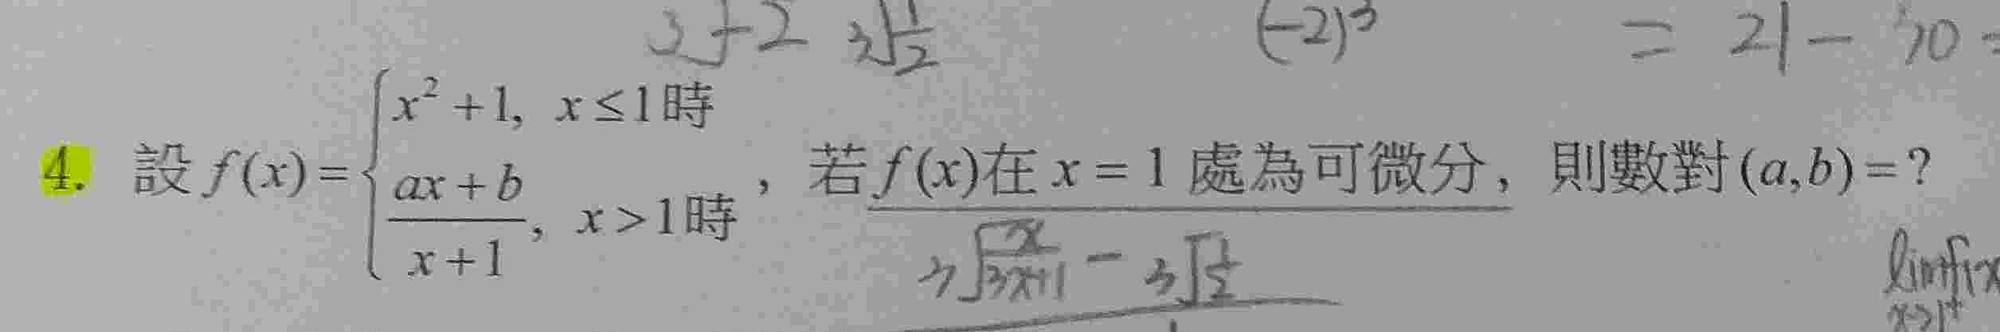 3+2 3√1/2 (-2)³ = 21 -
4. 設 f(x) = { x² + 1, x ≤ 1時
(ax + b)/(x + 1), x > 1時 ，若 f(x)在 x = 1 處為可微分，則數對(a,b) = ?
3√x/(3x+1) - 3√1/2
lim f(x
x→1⁺